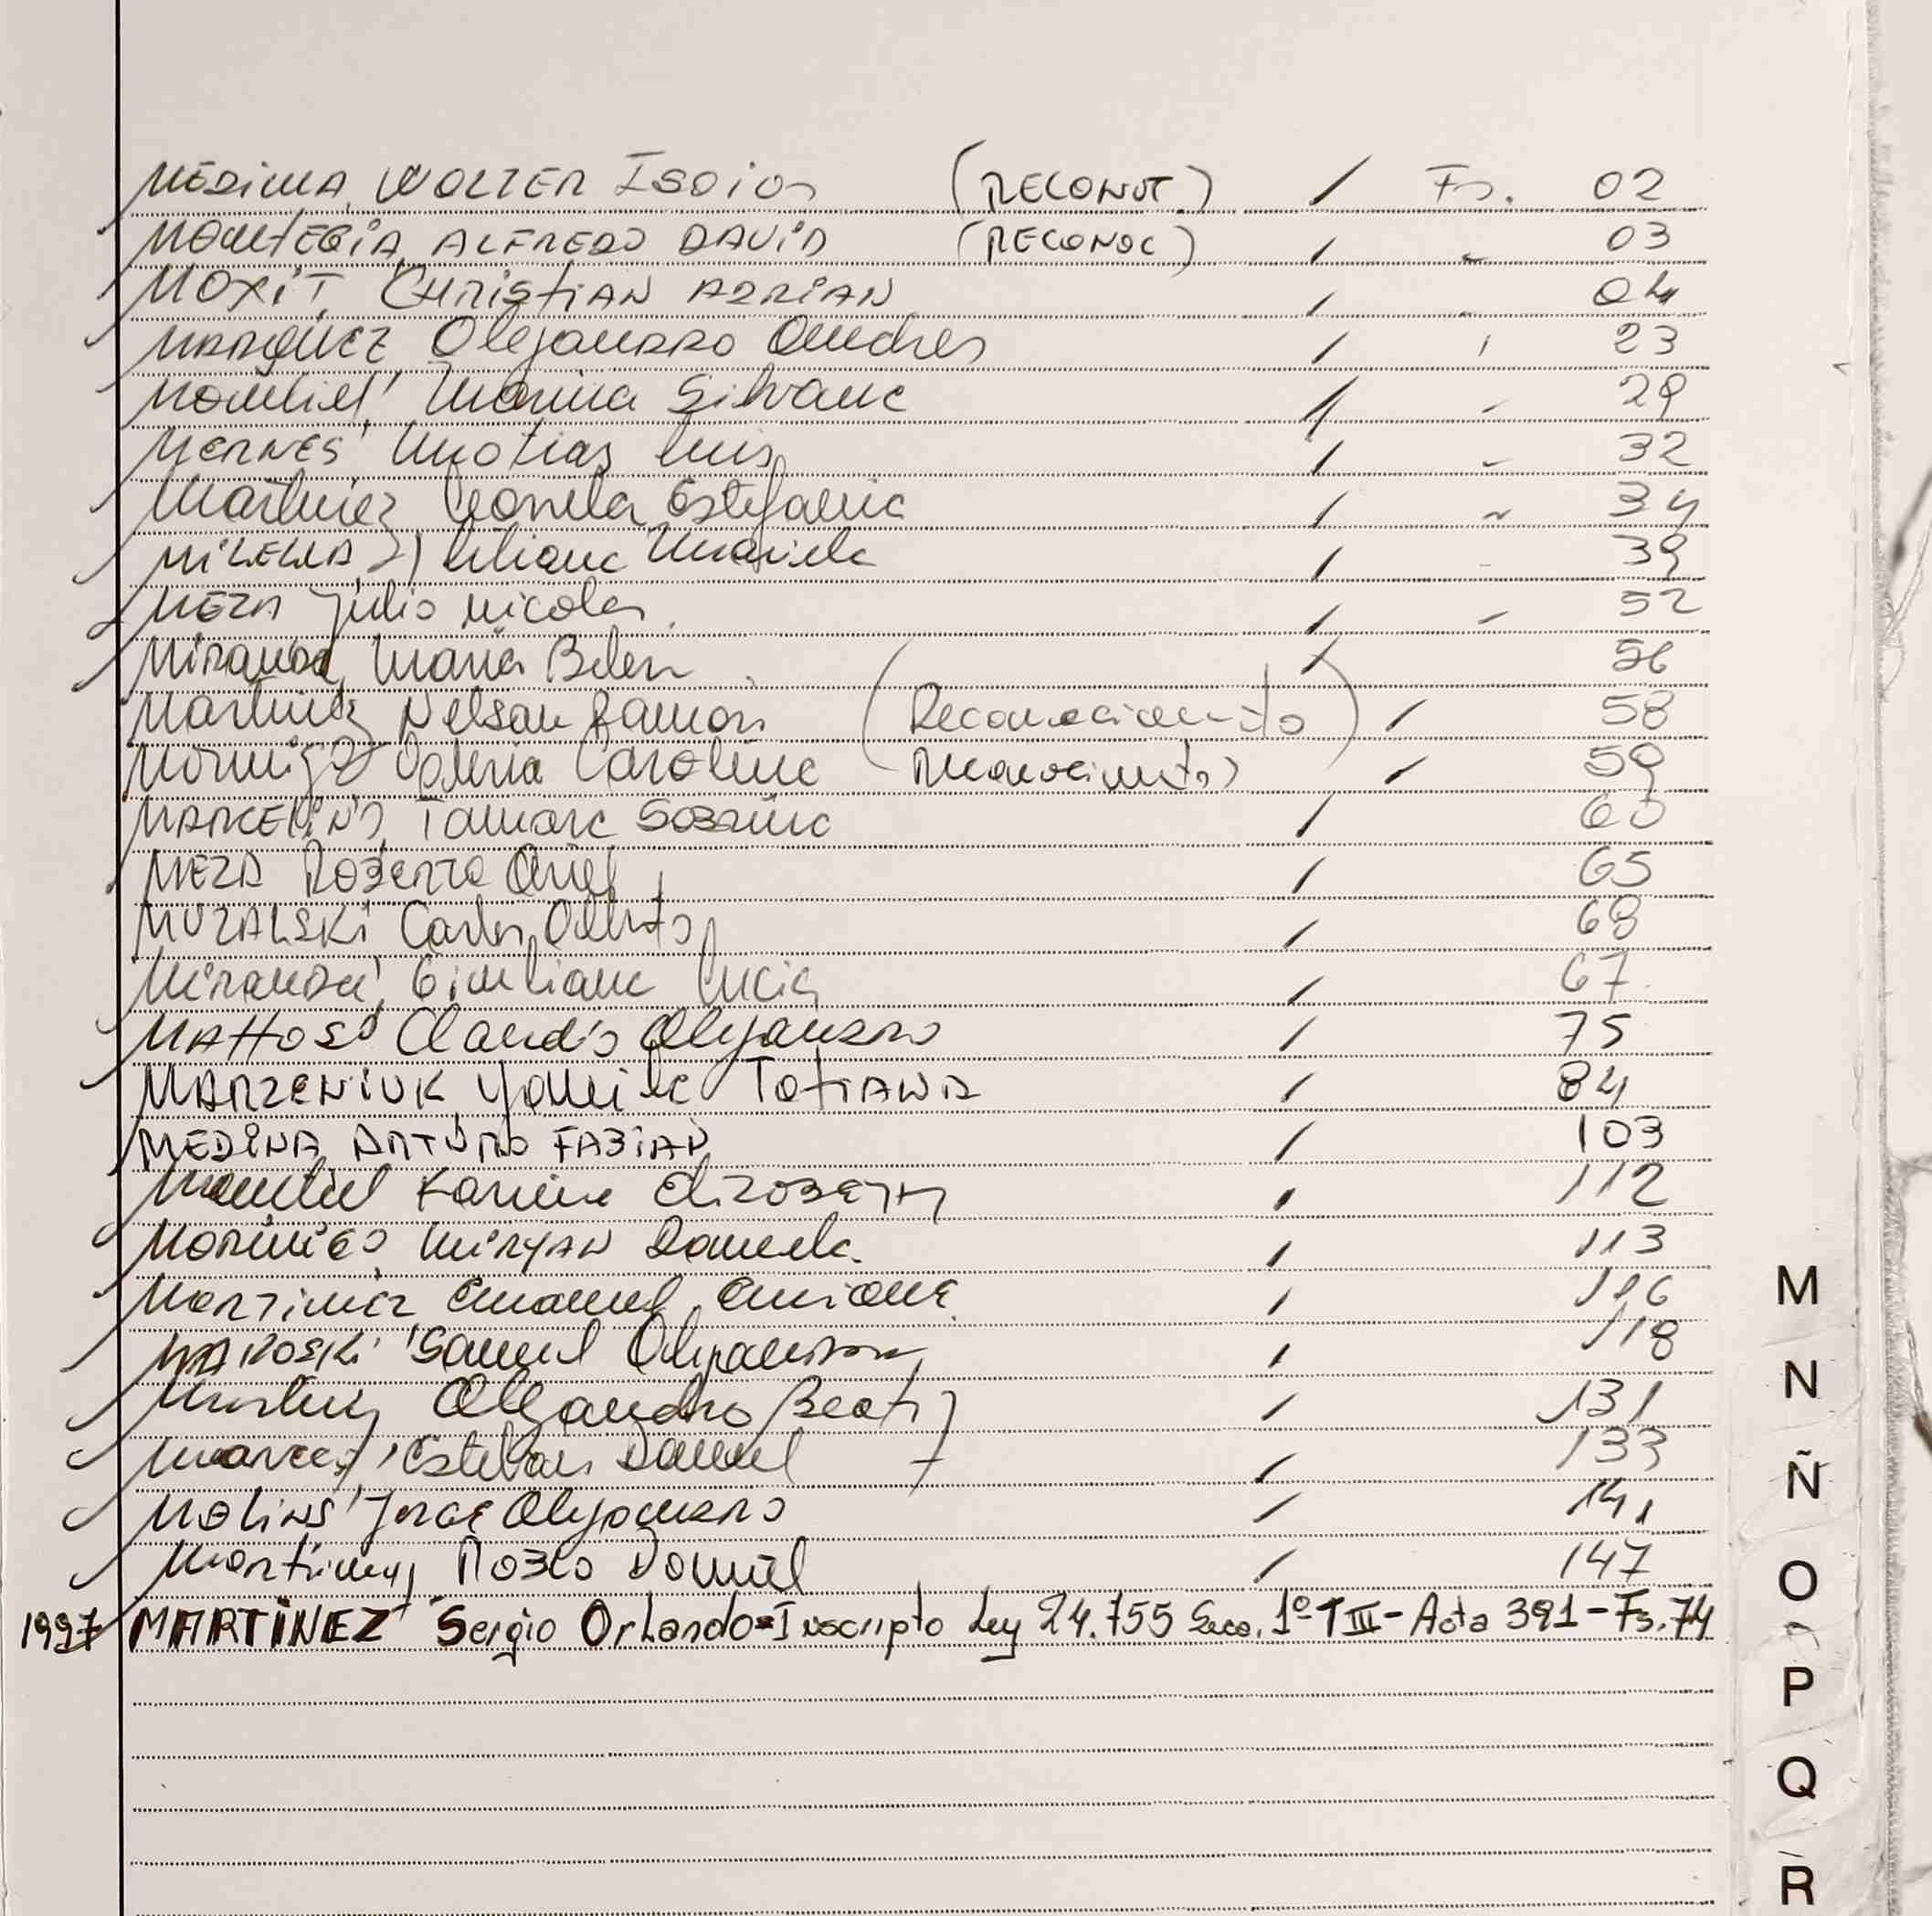 MEDINA, WOLTER ISOIAS (RECONOT) / Fs. 02
MONTEGIA, ALFREDO DAVID (RECONOC) / - 03
MOXIT, CHRISTIAN ADRIAN / - 04
MARQUEZ, Alejandro Andres / 23
Montiel, Marina Silvana / - 29
MERNES, Matias Luis / - 32
Martinez, Leonela Estefania / ~ 34
Liliana Mariela / - 39
MEZA Julio Nicolas / - 52
Miranda, Maria Belen / 56
Martinez Nelson Ramon (Reconocimiento) / 58
Valeria Carolina (Reconocimiento) / 59
MARCELINO, Tamara SABRINA / 60
MEZA ROBERTO Ariel / 65
MUZALSKI Carlos Alberto / 68
MIRANDA, Lucia / 67
MATTOSO Claudio Alejandro / 75
MARZENIUK, Yamila TATIANA / 84
MEDINA ARTURO FABIAN / 103
Montiel Karina ELIZABETH / 112
MIRYAN Daniela / 113
MARTINEZ, Emanuel / 116
Samuel / 118
Martinez Alejandro Beatriz / 131
Esteban Daniel / 133
MOLINS Jorge Alejandro / 141
Martinez PABLO Daniel / 147
1997 MARTÍNEZ Sergio Orlando=Inscripto Ley 24.755 Secc. 1º T III- Acta 391-Fs.74
M
N
Ñ
O
P
Q
R